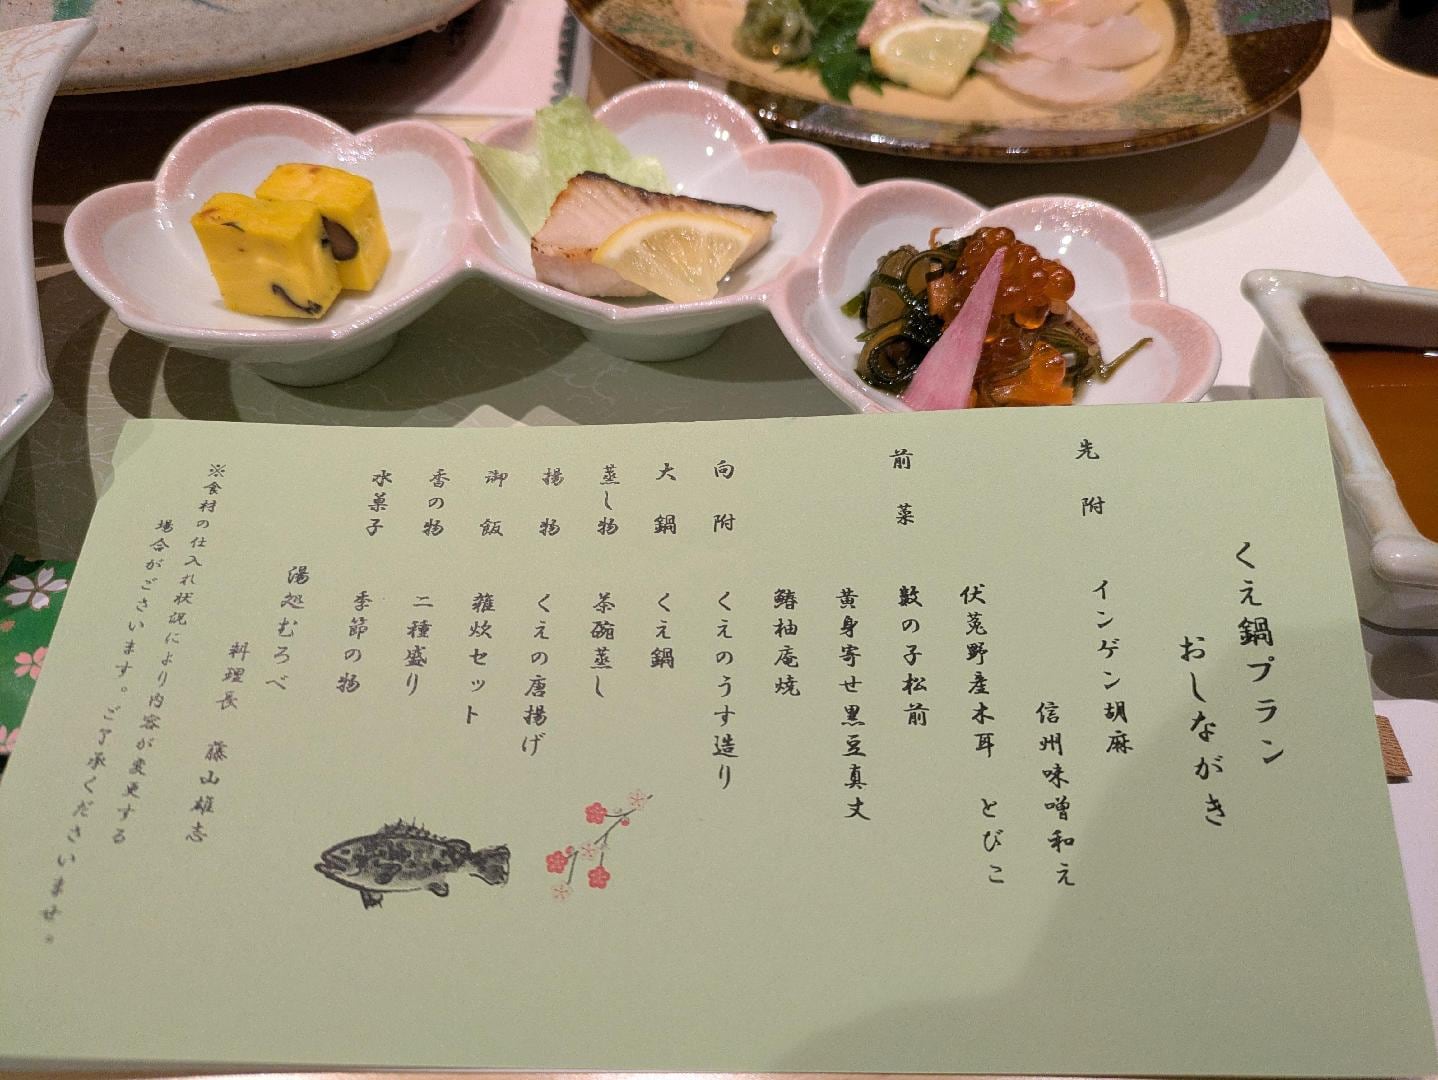 くえ鍋プラン
おしながき
先附 インゲン胡麻
信州味噌和え
伏菟野産木耳 とびこ
前菜 数の子松前
黄身寄せ黒豆真丈
鰆柚庵焼
向附 くえのうす造り
大鍋 くえ鍋
蒸し物 茶碗蒸し
揚物 くえの唐揚げ
御飯 雑炊セット
香の物 二種盛り
水菓子 季節の物
湯処むろべ
料理長 藤山雄志
※食材の仕入れ状況により内容が変更する
場合がございます。ご了承くださいませ。